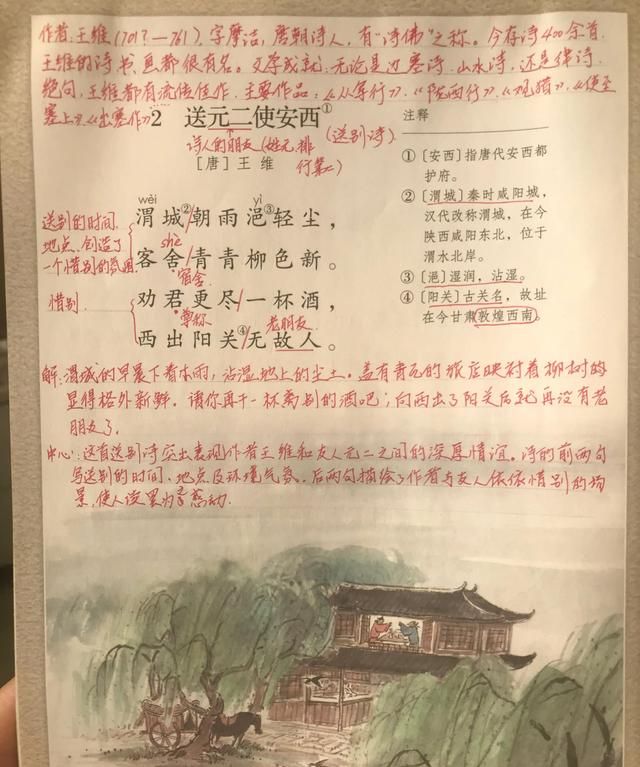 作者:王维(701?—761),字摩诘,唐朝诗人,有“诗佛”之称。今存诗400余首,
王维的诗书、画都很有名。文学成就:无论是边塞诗、山水诗,还是律诗、
绝句,王维都有流传佳作.主要作品:《从军行》.《陇西行》.《观猎》.《使至
塞上》.《出塞作》
2 送元二使安西①
(送别诗)
诗人的朋友(姓元,排
行第二)
[唐]王 维
送别的时间、
地点、创造了
一个惜别的氛围
wèi yì
渭城②/朝雨浥③轻尘,
shè
客舍/青青柳色新。
宿舍
惜别
劝君更尽/一杯酒,
尊称
老朋友
西出阳关④/无故人。
注释
①[安西]指唐代安西都
护府。
②[渭城]秦时咸阳城,
汉代改称渭城,在今
陕西咸阳东北,位于
渭水北岸。
③[浥]湿润,沾湿。
④[阳关]古关名,故址
在今甘肃敦煌西南。
解:渭城的早晨下着小雨,沾湿地上的尘土。盖有青瓦的旅店映衬着柳树的
显得格外新鲜。请你再干一杯离别的酒吧;向西出了阳关后就再没有老
朋友了.
中心:这首送别诗突出表现作者王维和友人元二之间的深厚情谊。诗的前两句
写送别的时间、地点及环境气氛.后两句描绘了作者与友人依依惜别的场
景,使人读罢为之感动.